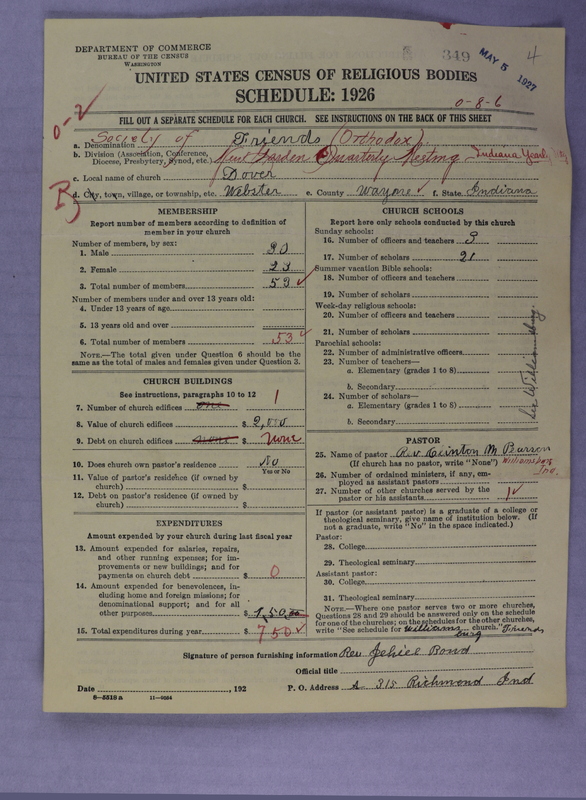 DEPARTMENT OF COMMERCE
BUREAU OF THE CENSUS
WASHINGTON
349
MAY 5 1927
4
UNITED STATES CENSUS OF RELIGIOUS BODIES
SCHEDULE: 1926
0-8-6
0-2
FILL OUT A SEPARATE SCHEDULE FOR EACH CHURCH. SEE INSTRUCTIONS ON THE BACK OF THIS SHEET
a. Denomination Society of Friends (Orthodox)
b. Division (Association, Conference, Diocese, Presbytery, Synod, etc.) New Garden Quarterly Meeting - Indiana Yearly
c. Local name of church Dover
d. City, town, village, or township, etc. Webster e. County Wayne f. State Indiana
MEMBERSHIP
Report number of members according to definition of member in your church
Number of members, by sex:
1. Male 30
2. Female 23
3. Total number of members 53
Number of members under and over 13 years old:
4. Under 13 years of age
5. 13 years old and over
6. Total number of members 53
NOTE.—The total given under Question 6 should be the same as the total of males and females given under Question 3.
CHURCH BUILDINGS
See instructions, paragraphs 10 to 12
7. Number of church edifices one 1
8. Value of church edifices $ 2,000
9. Debt on church edifices none $ none
10. Does church own pastor's residence No
Yes or No
11. Value of pastor's residence (if owned by church) $
12. Debt on pastor's residence (if owned by church) $
EXPENDITURES
Amount expended by your church during last fiscal year
13. Amount expended for salaries, repairs, and other running expenses; for improvements or new buildings; and for payments on church debt $ 0
14. Amount expended for benevolences, including home and foreign missions; for denominational support; and for all other purposes $
15. Total expenditures during year $ 750
CHURCH SCHOOLS
Report here only schools conducted by this church
Sunday schools:
16. Number of officers and teachers 3
17. Number of scholars 21
Summer vacation Bible schools:
18. Number of officers and teachers
19. Number of scholars
Week-day religious schools:
20. Number of officers and teachers
21. Number of scholars
Parochial schools:
22. Number of administrative officers
23. Number of teachers—
a. Elementary (grades 1 to 8)
b. Secondary
24. Number of scholars—
a. Elementary (grades 1 to 8)
b. Secondary
See Williamsburg.
PASTOR
25. Name of pastor Rev. Clinton M
(If church has no pastor, write "None") Williamsburg Ind.
26. Number of ordained ministers, if any, employed as assistant pastors
27. Number of other churches served by the pastor or his assistants 1
If pastor (or assistant pastor) is a graduate of a college or theological seminary, give name of institution below. (If not a graduate, write "No" in the space indicated.)
Pastor:
28. College
29. Theological seminary
Assistant pastor:
30. College
31. Theological seminary
NOTE.—Where one pastor serves two or more churches, Questions 28 and 29 should be answered only on the schedule for one of the churches; on the schedules for the other churches, write "See schedule for Williamsburg church." Friends
Signature of person furnishing information Rev Jehiel Bond
Official title
Date , 192
P. O. Address A 315 Richmond Ind
8-5518 a 11-9054